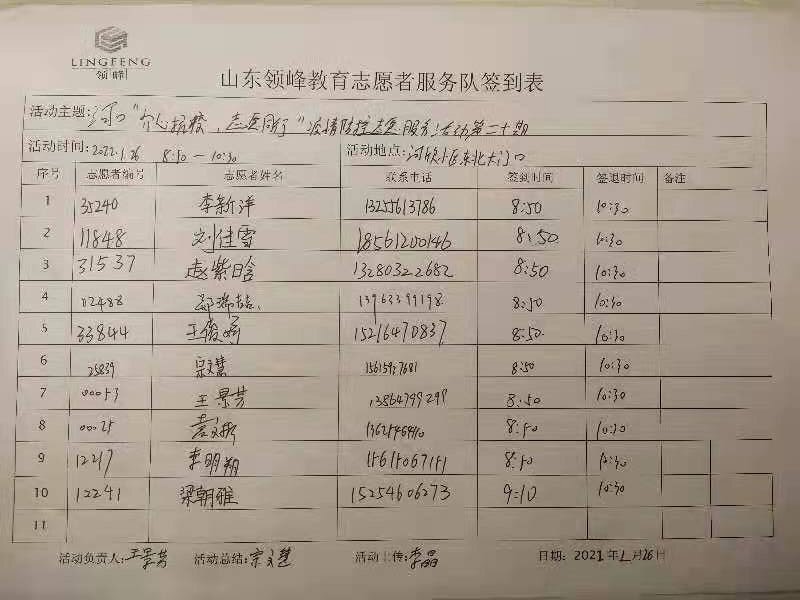 LINGFENG
领峰
山东领峰教育志愿者服务队签到表
活动主题: 河口"众心抗疫,志愿同行"疫情防控志愿服务活动第二十期
活动时间: 2022.1.26 8:50 — 10:30 活动地点: 河欣小区东北大门口
序号 志愿者编号 志愿者姓名 联系电话 签到时间 签退时间 备注
1 35240 李新洋 13255613786 8:50 10:30
2 11848 刘佳雪 18561200146 8:50 10:30
3 31537 赵紫晗 13280322682 8:50 10:30
4 12488 13963399198 8:50 10:30
5 33844 王俊娇 15216470837 8:50 10:30
6 25839 宗文慧 15615927681 8:50 10:30
7 00053 王景芳 13864799299 8:50 10:30
8 00025 8:50 10:30
9 12217 李明翔 15615067151 8:50 10:30
10 12241 梁朝雅 15254606273 9:10 10:30
11
活动负责人: 王景芳 活动总结: 宗文慧 活动上传: 李晶 日期: 2021年1月26日